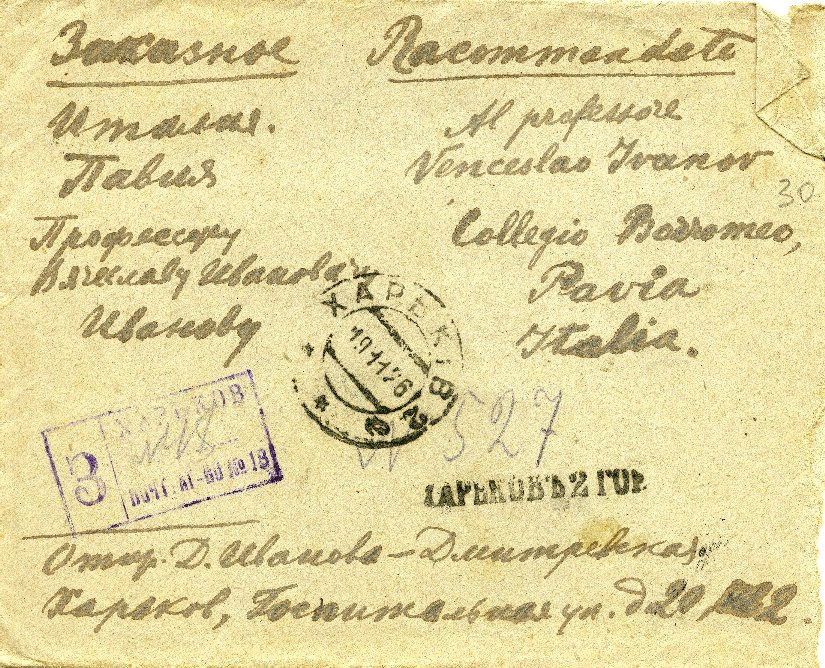 Заказное
Racommandato
Италия.
Павия
Профессору
Вячеславу Иванович
Иванову
Al professore
Venceslao Ivanov
Collegio Borromeo,
Pavia
Italia.
30
ХАРЬКІВ
19 11 26
З
ХАРЬКОВ
ПОЧТ. АГ-ВО № 18
N 527
ХАРЬКОВЪ 2 ГОР
Отпр. Д. Иванова-Дмитревская
Харьков, Госпитальная ул. д 20, 2.